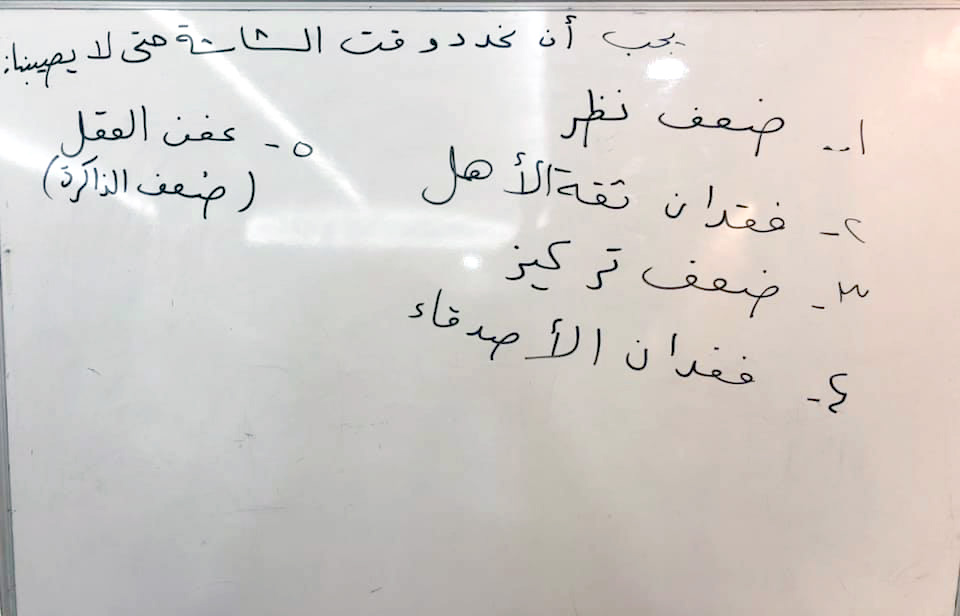 يجب أن نحدد وقت الشاشة حتى لا يصيبنا:
١- ضعف نظر
٢- فقدان ثقة الأهل
٣- ضعف تركيز
٤- فقدان الأصدقاء
٥- عفن العقل
(ضعف الذاكرة)